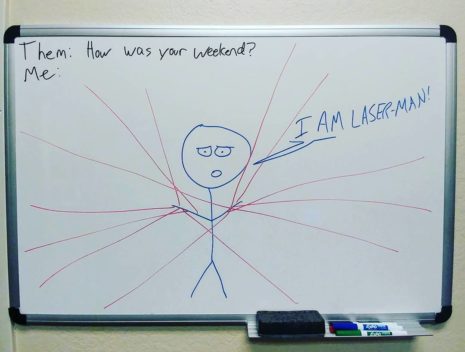 Them: How was your weekend?
Me:
I AM LASER-MAN!